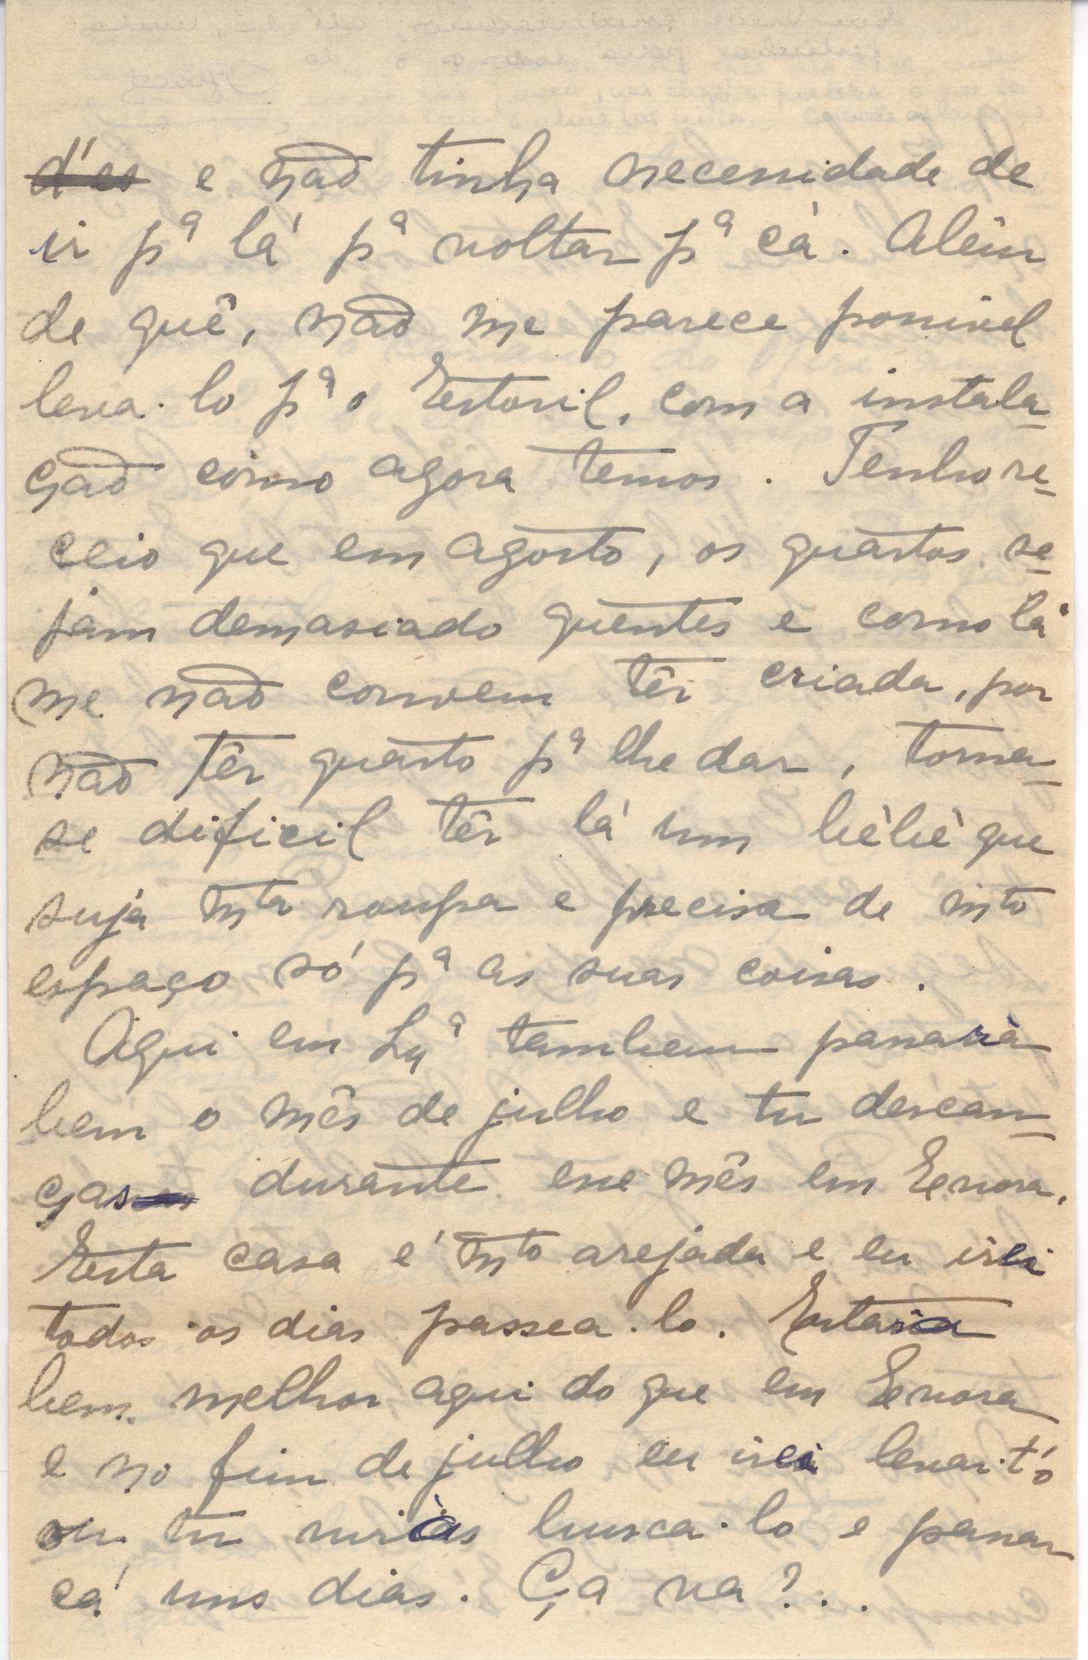 e não tinha necessidade de
ir pª lá pª voltar pª cá. Alêm
de quê, não me parece possivel
leva-lo pª o Estoril, com a instala-
ção como agora temos. Tenho re-
ceio que em agosto, os quartos se-
jam demasiado quentes e como lá
me não convem têr criada, por
não têr quarto pª lhe dar, torna-
se dificil têr lá um bèbè que
suja mta roupa e precisa de mto
espaço só pª as suas coisas.
Aqui em Lxª tambem passarà
bem o mês de julho e tu descan-
ças durante esse mês em Evora.
Esta casa é mto arejada e eu irei
todos os dias passea-lo. Estaria
bem melhor aqui do que em Evora
e no fim de julho eu irei levar-t'ó
ou tu viràs busca-lo e passar
cá uns dias. Ça va?...